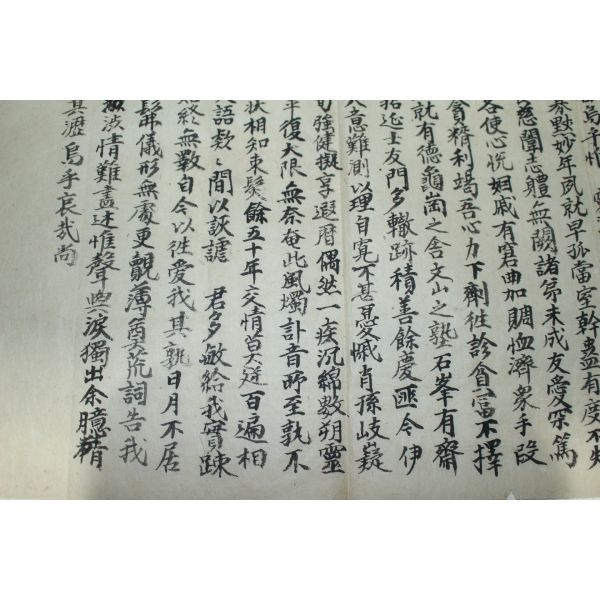 嗚乎惟
黙妙年夙就早孤當室幹蠱有度不失
慈闈志體無闕諸弟未成友愛深篤
各使心悅姻戚有窮曲加賙恤濟衆手段
貪精利竭吾心力下劑往診會當不擇
就有德龜崗之舍文山之塾石峯有齋
近士友門多轍跡積善餘慶匪今伊
意難測以理自寬不甚憂慽肖孫岐嶷
強健擬享遐曆偶然一疾沉綿數朔靈
復大限無奈奄此風燭訃音所至孰不
狀相知束髮餘五十年交情莫逆百遍相
語數〻間以詼謔 君多敏給我實踈
終無斁自今以往愛我其孰日月不居
儀形無處更覿薄奠荒詞告我
淡情難盡述惟聲與淚獨出余臆精
其瀝烏乎哀哉尚